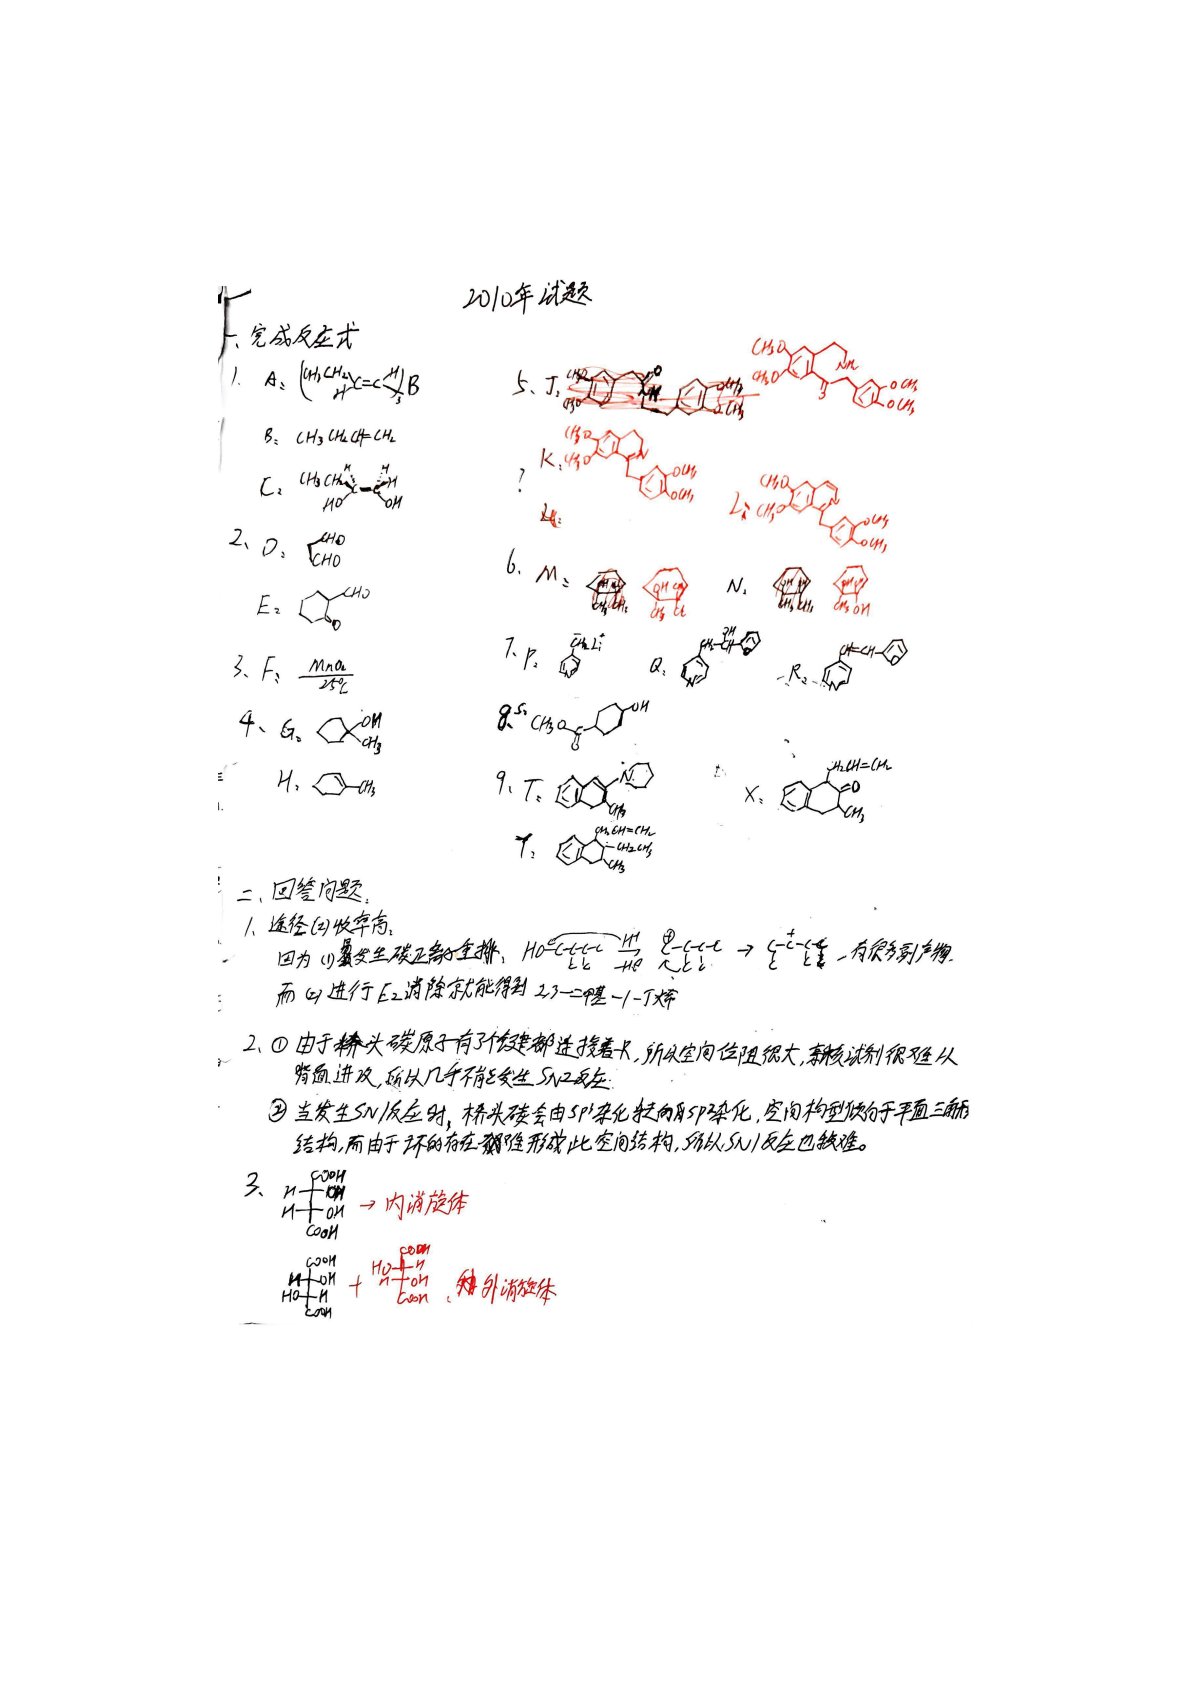 2010年试题
一、完成反应式
1. A: (CH3CH2 H C=C H )3B
B: CH3CH2CH=CH2
C: CH3CH2 H H H HO OH
2、D: CHO CHO
E: CHO O
3、F: MnO2 25℃
4、G: OH CH3
H: CH3
5、J: CH3O CH3O NH OCH3 OCH3
K: CH3O CH3O N OCH3 OCH3
?
L: CH3O CH3O N OCH3 OCH3
6. M: OH CH3 Cl
N: CH3 OH
7. P: CH2Li N
Q: CH2-CH OH N
R: CH=CH N
8. S: CH3O C O OH
9. T: N CH3
X: CH2CH=CH2 O CH3
Y: CH2CH=CH2 CH2CH3 CH3
二、回答问题:
1. 途径(2)收率高.
因为(1)易发生碳正离子重排, HO-C-C-C-C H+ → 有很多副产物.
而(2)进行E2消除就能得到2,3-二甲基-1-丁烯
2、① 由于桥头碳原子有3个键都连接着环,所以空间位阻很大,亲核试剂很难从
背面进攻,所以几乎不能发生SN2反应.
② 当发生SN1反应时,桥头碳会由SP3杂化转向SP2杂化,空间构型倾向于平面三角形
结构,而由于环的存在很难形成此空间结构,所以SN1反应也较难。
3、 COOH H OH H OH COOH → 内消旋体
COOH H OH HO H COOH + COOH HO H H OH COOH 外消旋体